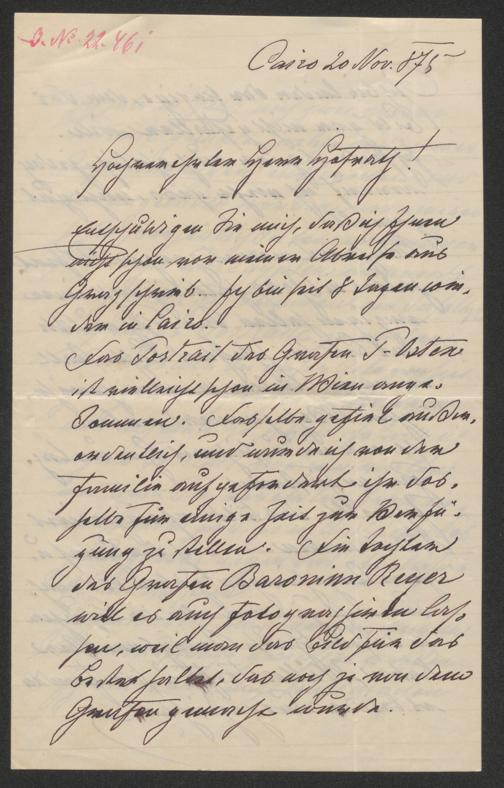 J. Nr. 22.461
Cairo 20 Nov. 875
Hochverehrter Herr Hofrath!
Entschuldigen Sie mich, daß ich Ihnen
nicht schon vor meiner Abreise aus
Graz schrieb. Ich bin seit 8 Tagen wie-
der in Cairo.
Das Portrait des Grafen P-Osten
ist vielleicht schon in Wien ange-
kommen. Dasselbe gefiel außer-
ordentlich, und wurde ich von der
Familie aufgefordert ihr das-
selbe für einige Zeit zur Verfü-
gung zu stellen. Die Tochter
des Grafen Baronin Reyer
will es auch fotografieren las-
sen, weil man das Bild für das
beste hält, das noch je von dem
Grafen gemacht wurde.